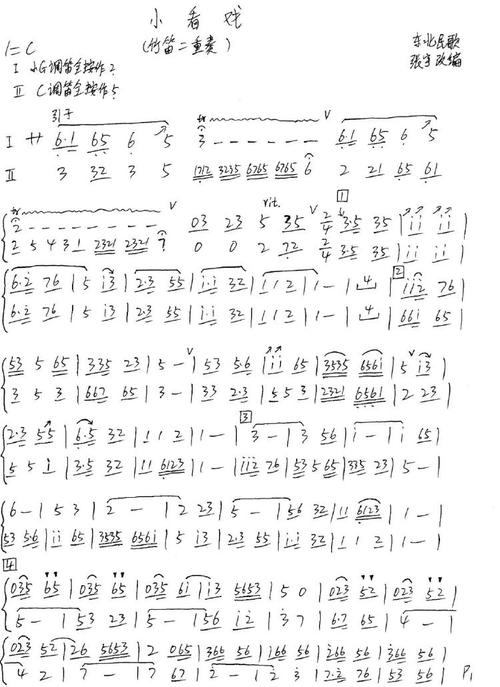 小看戏
(竹笛二重奏)
1=C
东北民歌
I 小G调笛全按作2
张宇改编
II C调笛全按作5
引子
I サ 6·1 65 6 5 3 - - - - - - V 6·1 65 6 5
II 3 32 3 5 1212 3235 6765 6765 6 2 21 65 61
tr V rit. 1
2 - - - - - - - 03 23 5 35 V 2/4 3·5 35 | i i i i |
2 5 4 3 1 2321 2321 7 0 0 2 72 2/4 3·5 35 | i i i i |
6·2 76 | 5 i3 | 2·3 55 | i·i 32 | 1 1 2 | 1 - | 4 | 2 ii2 76 |
6·2 76 | 5 i3 | 2·3 55 | i·i 32 | 1 1 2 | 1 - | 4 | 66i 65 |
53 5 65 | 335 23 | 5 - V | 53 5·6 | ii 65 | 3535 656i | 5 V i3 |
3 5 3 | 667 65 | 3 - | 33 2·3 | 5 5 3 | 2321 6561 | 2 23 |
2·3 55 | 6·5 32 | 1 1 2 | 1 - | 3 3 - | 3 56 | i - | i 65 |
5 5 i | 3·5 32 | 11 6123 | 1 - | ii2 76 | 53 5 65 | 335 23 | 5 - |
6 - | 5 3 | 2 - | 2 23 | 5 - | 56 32 | 11 6123 | 1 - |
53 56 | ii 65 | 3535 656i | 5 i3 | 2·3 55 | i·i 32 | 1 1 2 | 1 - |
4
035 65 | 035 65 | 035 6i | i3 5653 | 5 0 | 023 52 | 023 52 |
5 - | 53 23 | 5 - | 56 i2 | 3 7 | 6·7 65 | 4 - |
023 52 | 26 5653 | 2 065 | 366 56 | i66 56 | 366 56 | 366 56 |
4 2 | 7 - | 7 67 | 2 - | 2 3 | 7·2 76 | 53 56 | P1